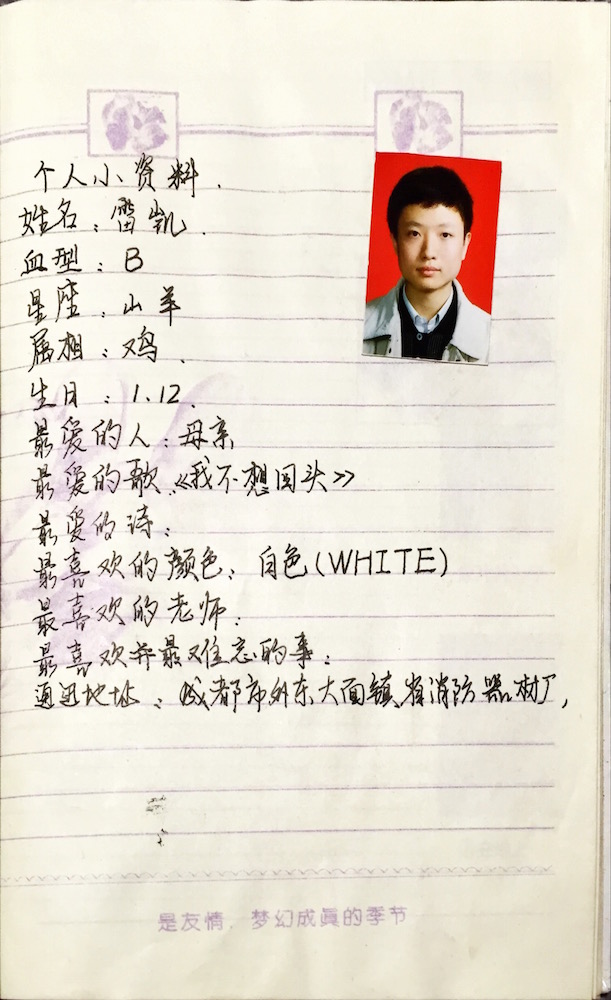 个人小资料.
姓名：雷凯.
血型：B
星座：山羊
属相：鸡.
生日：1.12.
最爱的人：母亲
最爱的歌《我不想回头》
最爱的诗：
最喜欢的颜色：白色(WHITE)
最喜欢的老师：
最喜欢并最难忘的事：
通迅地址：成都市外东大面镇省消防器材厂,
是友情，梦幻成真的季节